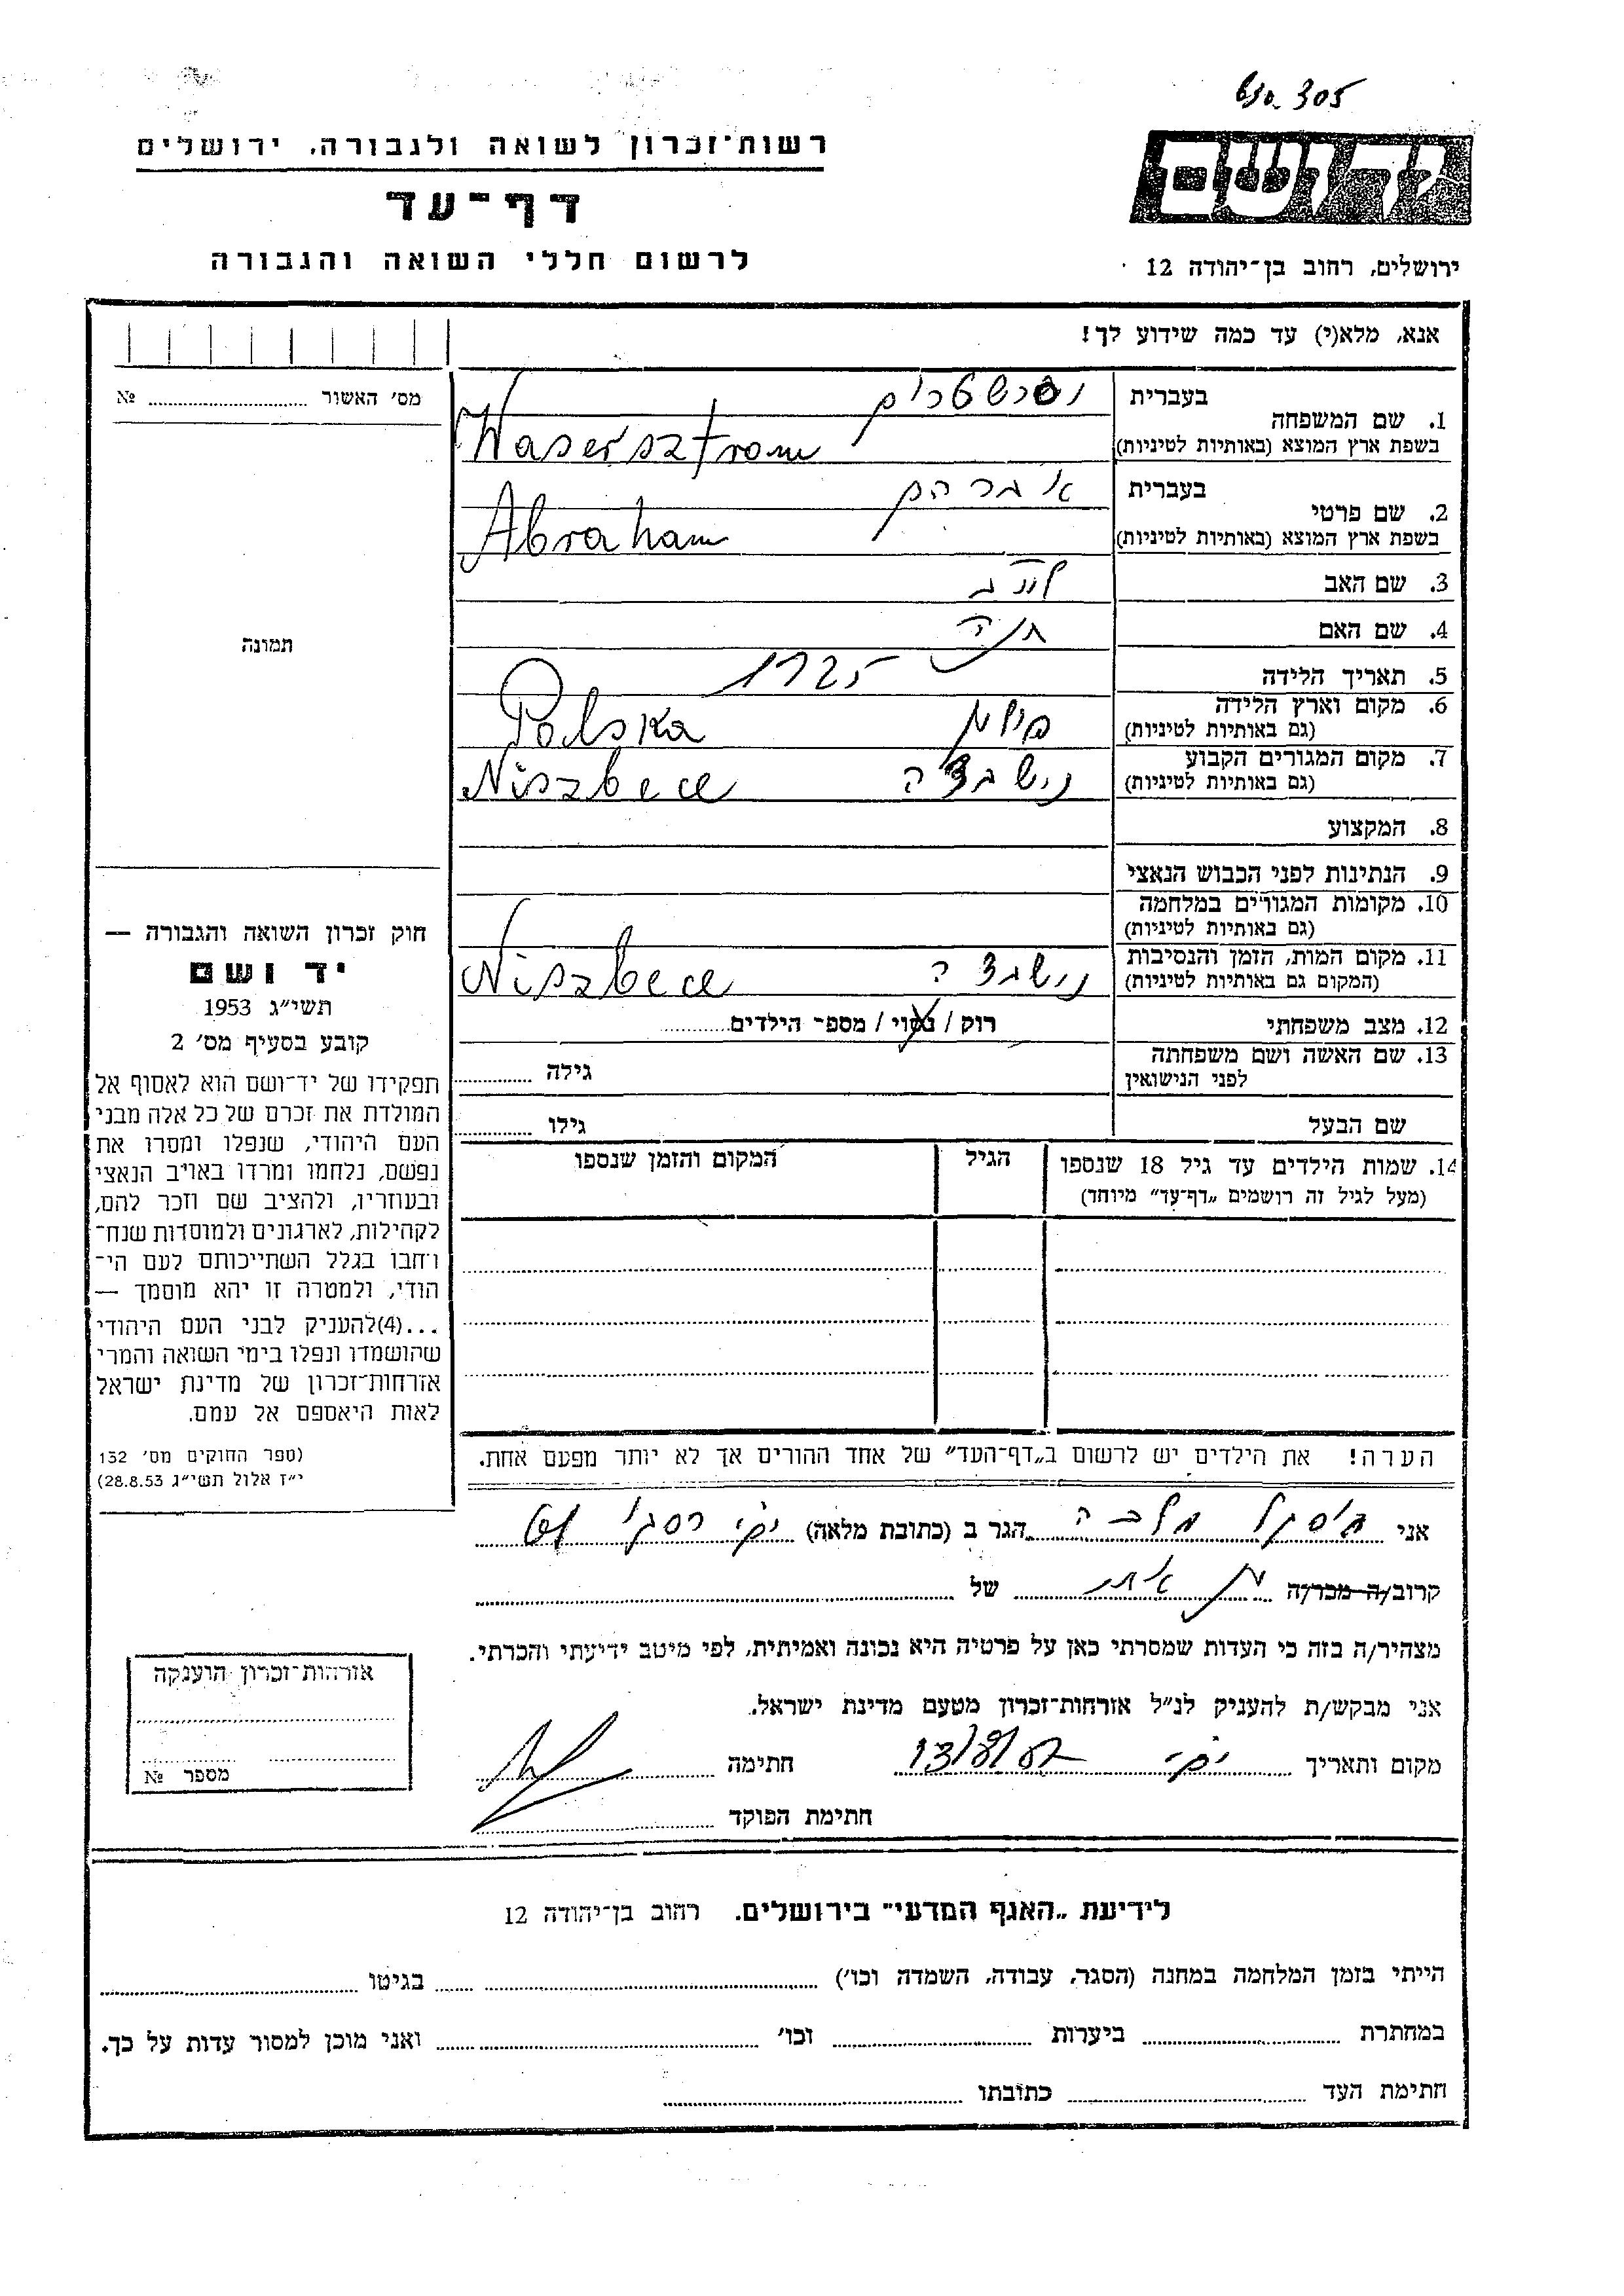 305
רשות־זכרון לשואה ולגבורה, ירושלים
דף־עד
לרשום חללי השואה והגבורה
יד ושם
ירושלים, רחוב בן־יהודה 12
אנא, מלא(י) עד כמה שידוע לך!
מס׳ האשור № 
תמונה
1. שם המשפחה
בעברית
וסרשטרום
בשפת ארץ המוצא (באותיות לטיניות)
Wasersztrom
2. שם פרטי
בעברית
אברהם
בשפת ארץ המוצא (באותיות לטיניות)
Abraham
3. שם האב
4. שם האם חנה
5. תאריך הלידה 1925
6. מקום וארץ הלידה פולין Polska
(גם באותיות לטיניות)
7. מקום המגורים הקבוע נישבצה Niszbece
(גם באותיות לטיניות)
8. המקצוע
9. הנתינות לפני הכבוש הנאצי
10. מקומות המגורים במלחמה
(גם באותיות לטיניות)
11. מקום המות, הזמן והנסיבות נישבצה Niszbece
(המקום גם באותיות לטיניות)
12. מצב משפחתי רוק / נשוי / מספר הילדים
13. שם האשה ושם משפחתה גילה
לפני הנישואין
שם הבעל גילו
14. שמות הילדים עד גיל 18 שנספו הגיל המקום והזמן שנספו
(מעל לגיל זה רושמים „דף־עד” מיוחד)
חוק זכרון השואה והגבורה —
יד ושם
תשי״ג 1953
קובע בסעיף מס׳ 2
תפקידו של יד־ושם הוא לאסוף אל
המולדת את זכרם של כל אלה מבני
העם היהודי, שנפלו ומסרו את
נפשם, נלחמו ומרדו באויב הנאצי
ובעוזריו, ולהציב שם וזכר להם,
לקהילות, לארגונים ולמוסדות שנח־
רחבו בגלל השתייכותם לעם הי־
הודי, ולמטרה זו יהא מוסמך —
...(4)להעניק לבני העם היהודי
שהושמדו ונפלו בימי השואה והמרי
אזרחות־זכרון של מדינת ישראל
לאות היאספם אל עמם.
(ספר החוקים מס׳ 132
י״ז אלול תשי״ג 28.8.53)
הערה! את הילדים יש לרשום ב„דף־העד” של אחד ההורים אך לא יותר מפעם אחת.
אני מלכה הגר ב (כתובת מלאה)
קרוב/ה מכר/ה של
מצהיר/ה בזה כי העדות שמסרתי כאן על פרטיה היא נכונה ואמיתית, לפי מיטב ידיעתי והכרתי.
אני מבקש/ת להעניק לנ״ל אזרחות־זכרון מטעם מדינת ישראל.
מקום ותאריך חתימה
חתימת הפוקד
אזרחות־זכרון הוענקה
מספר №
לידיעת „האגף המדעי” בירושלים. רחוב בן־יהודה 12
הייתי בזמן המלחמה במחנה (הסגר, עבודה, השמדה וכו׳) בגיטו
במחתרת ביערות וכו׳ ואני מוכן למסור עדות על כך.
חתימת העד כתובתו